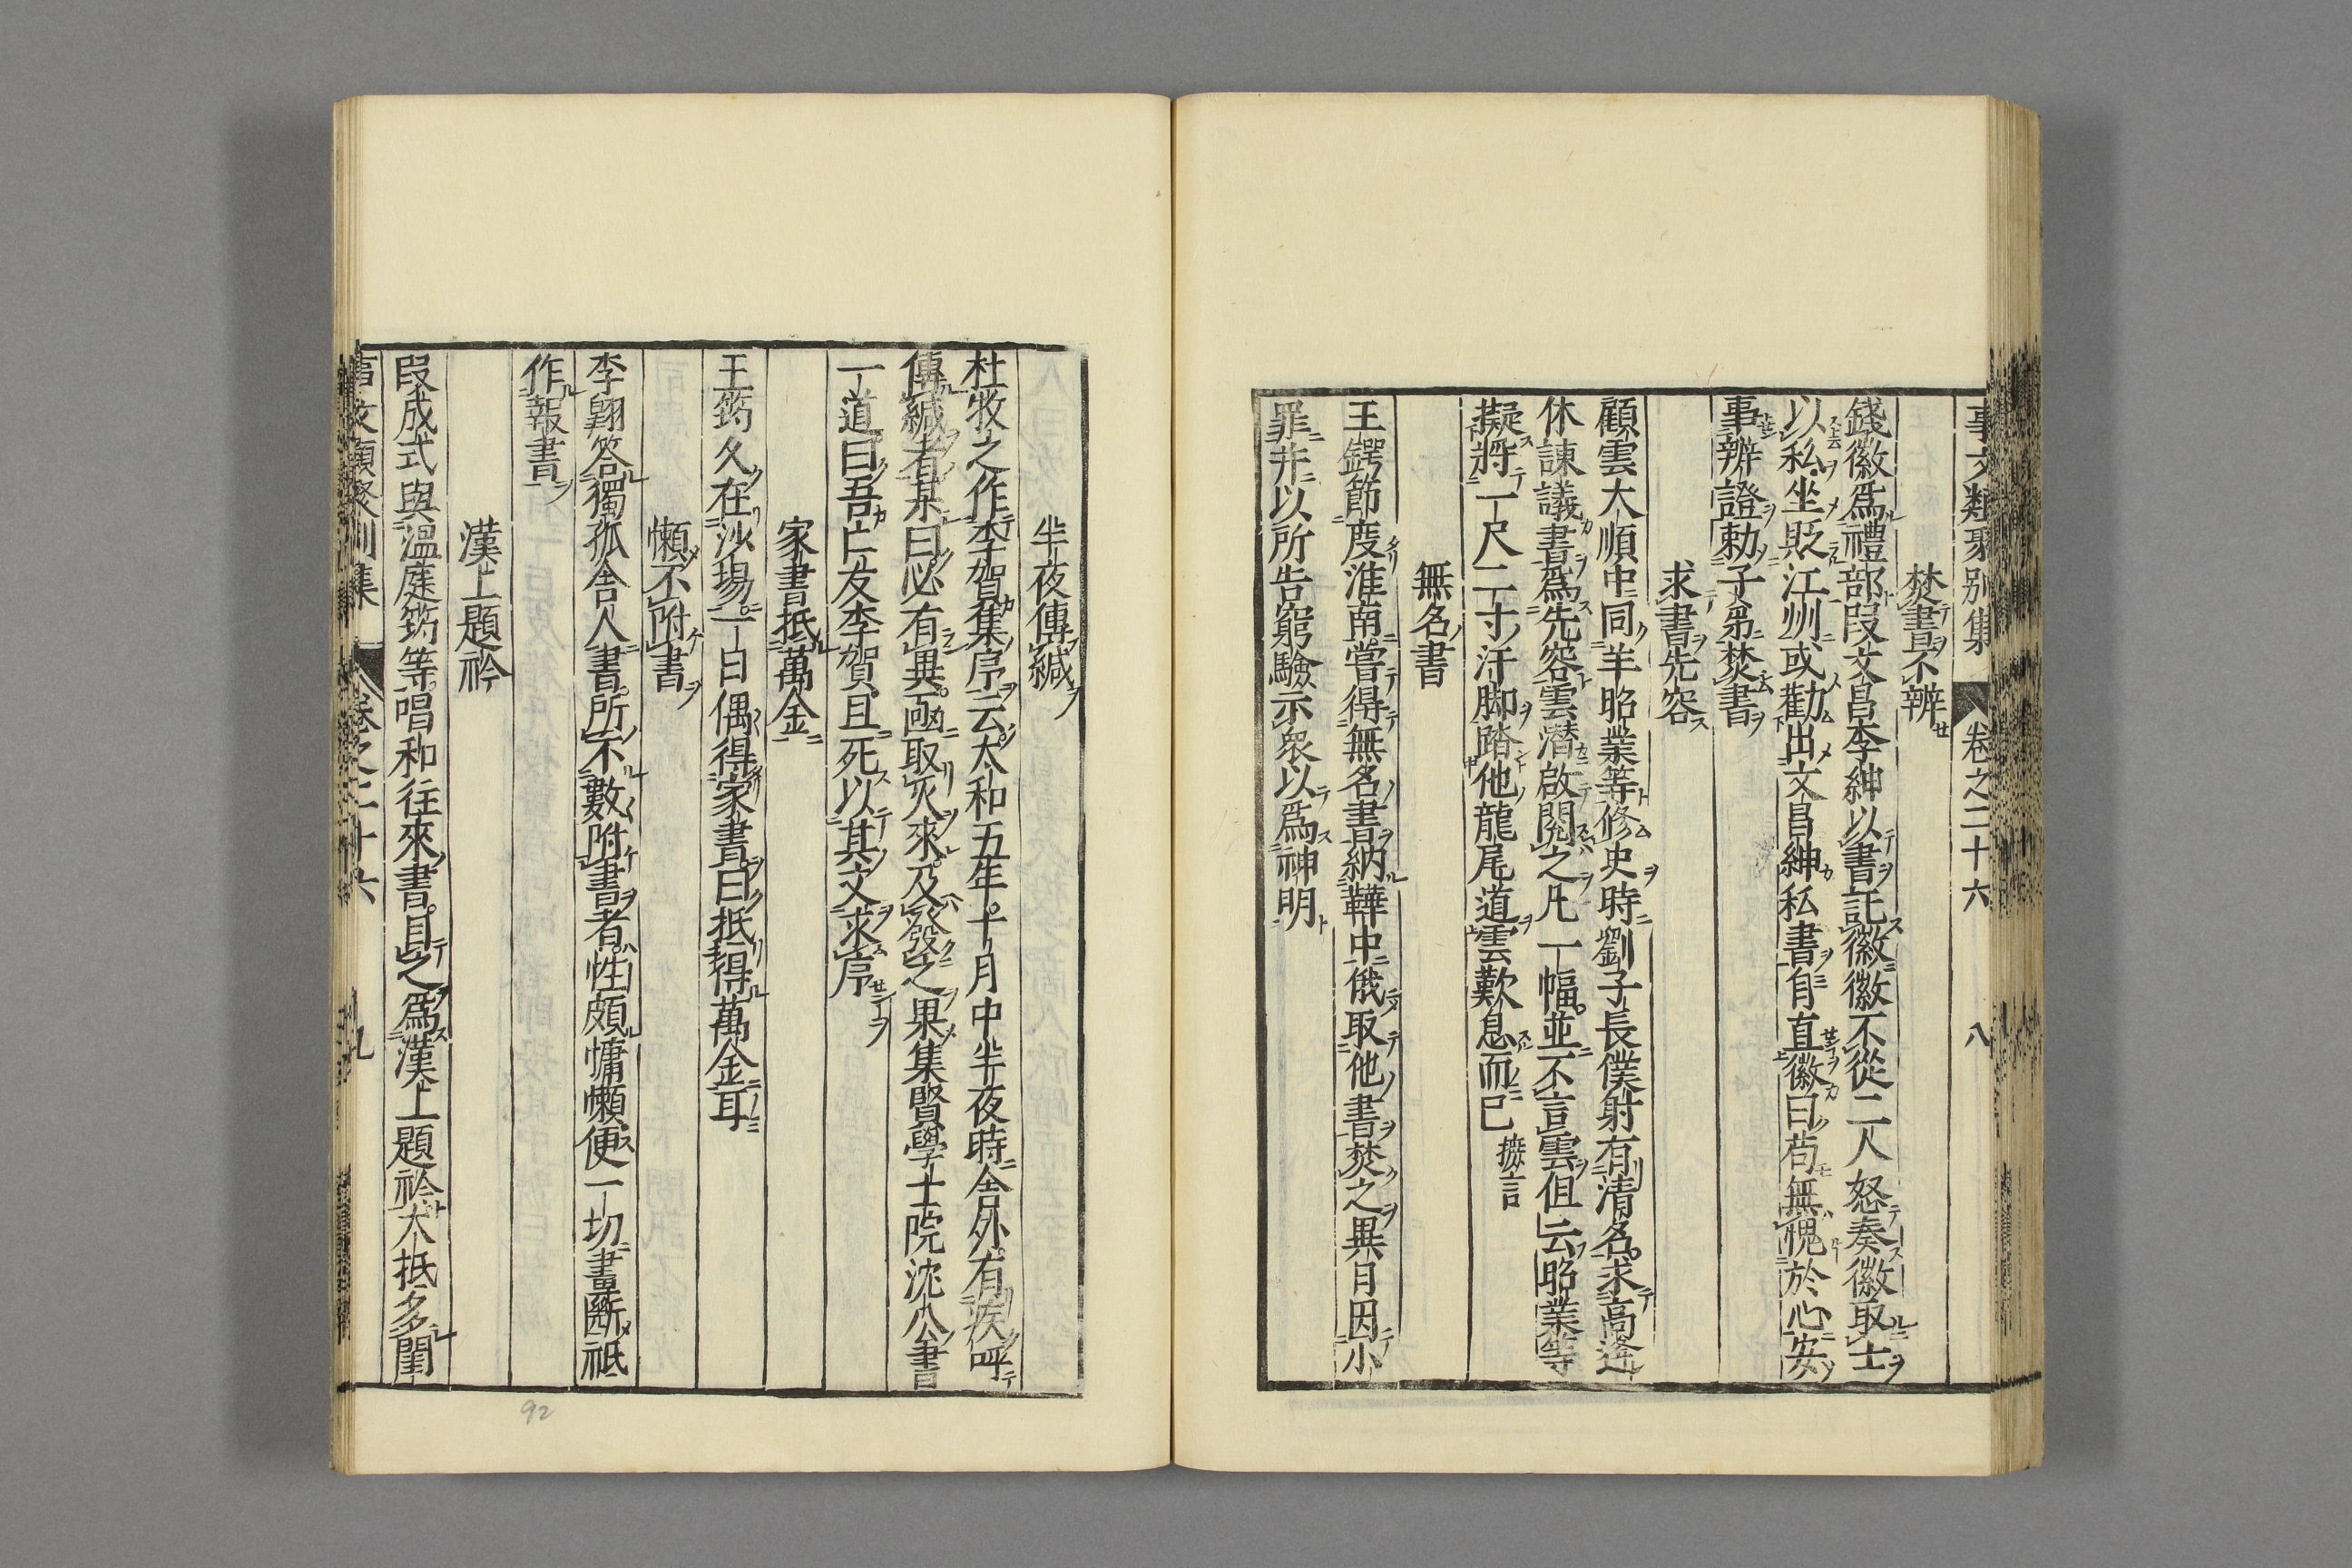 事文類聚別集 卷之二十六 八
焚書不辨
錢徽爲禮部段文昌李紳以書託徽徽不從二人怒奏徽取士
以私坐貶江州或勸出文昌紳私書自直徽曰苟無愧於心安
事辨證勅子弟焚書
求書先容
顧雲大順中同羊昭業等修史時劉子長僕射有清名求高逢
休諫議書爲先容雲潜啟閱之凡一幅並不言雲但云昭業等
擬將一尺二寸汗脚踏他龍尾道雲歎息而已 摭言
無名書
王鍔節度淮南嘗得無名書納鞾中俄取他書焚之異日因小
罪并以所告窮驗示衆以爲神明
半夜傳緘
杜牧之作李賀集序云太和五年十月中半夜時舍外有疾呼
傳緘者某曰必有異亟取火來及發之果集賢學士院沈公書
一道曰吾亡友李賀且死以其文求序
家書抵萬金
王筠久在沙場一日偶得家書曰抵得萬金耳
懶不附書
李翺答獨孤舍人書所不數附書者性頗慵懶便一切畫斷祗
作報書
漢上題衿
段成式與溫庭筠等唱和往來書目之爲漢上題衿大抵多閨
事文類聚別集 卷之二十六 九
92